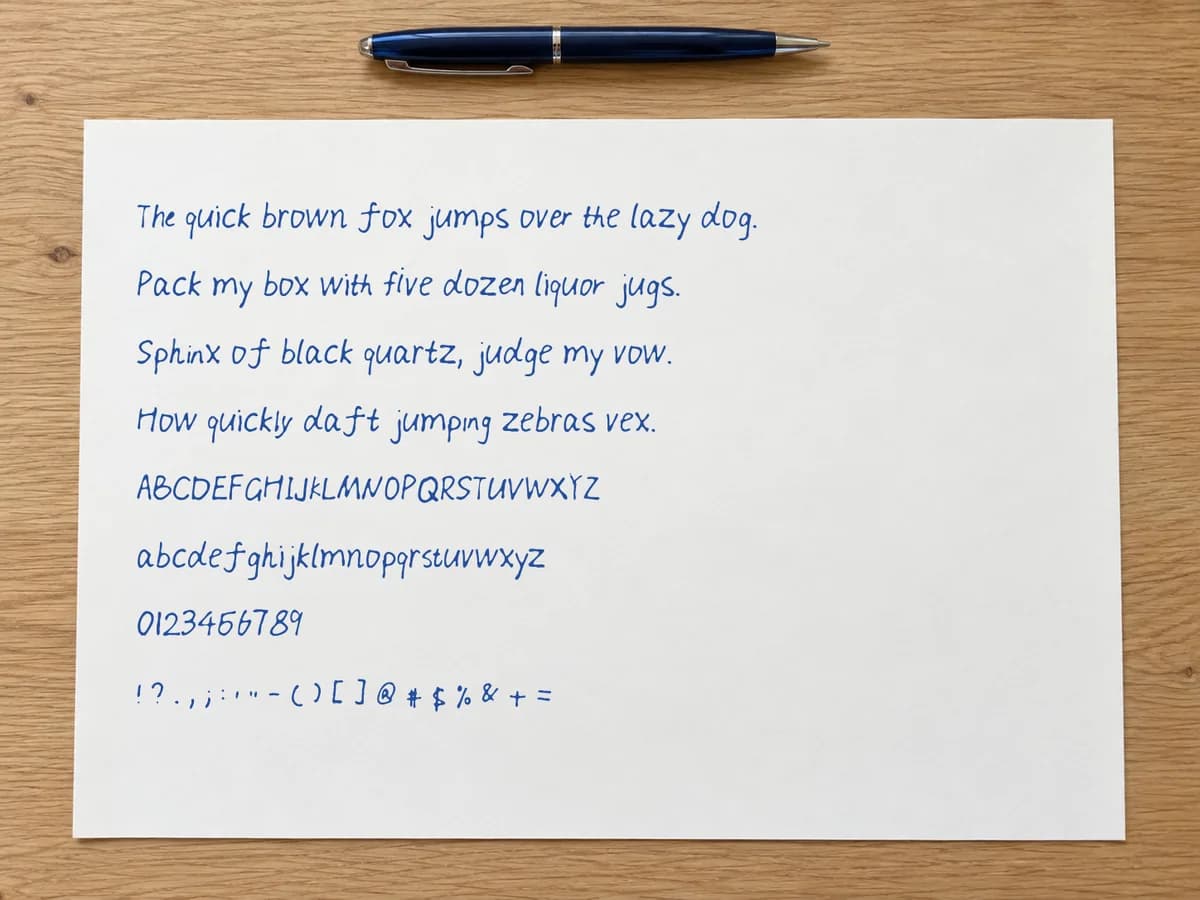 The quick brown fox jumps over the lazy dog.
Pack my box with five dozen liquor jugs.
Sphinx of black quartz, judge my vow.
How quickly daft jumping zebras vex.
ABCDEFGHIJKLMNOPQRSTUVWXYZ
abcdefghijklmnopqrstuvwxyz
0123456789
! ? . , ; : ' " - ( ) [ ] @ # $ % & + =